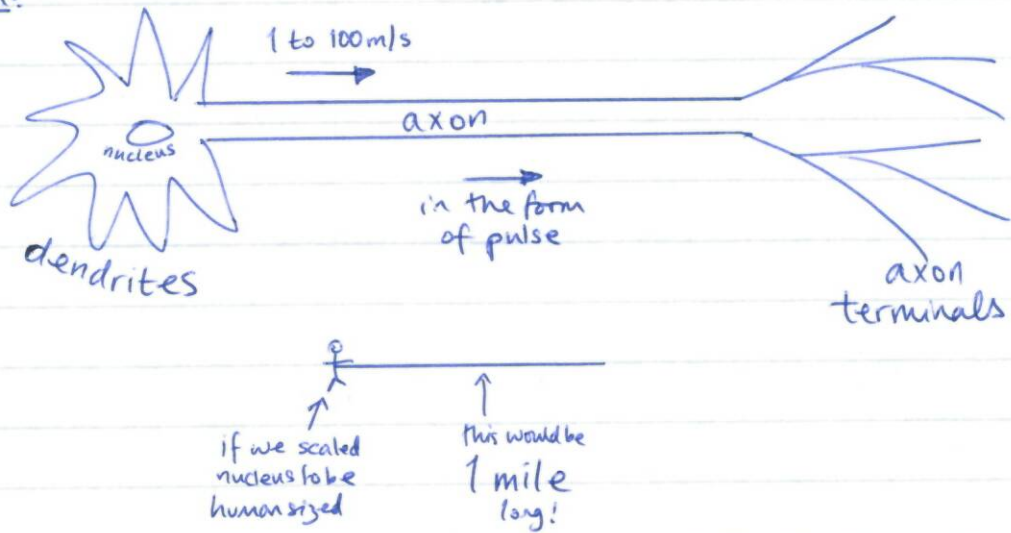 1 to 100m/s
axon
nucleus
in the form
of pulse
dendrites
axon
terminals
if we scaled
nucleus to be
human sized
this would be
1 mile
long!